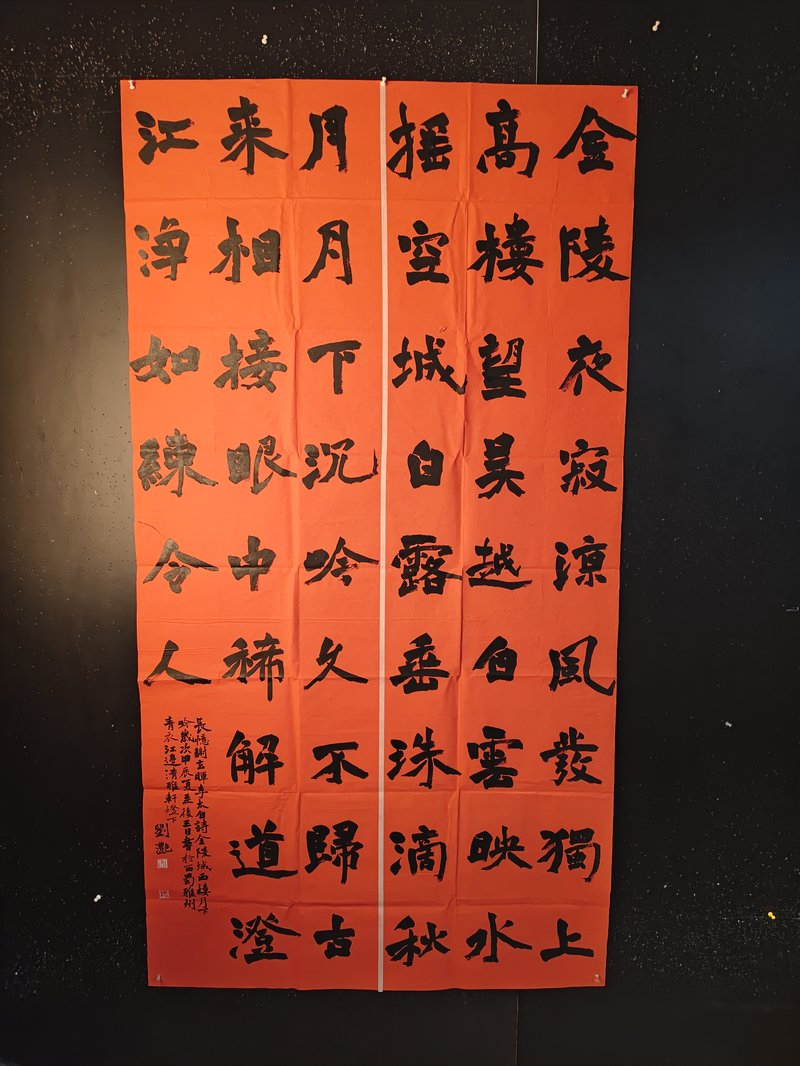 金陵夜寂涼風發獨上
高樓望吳越白雲映水
摇空城白露垂珠滴秋
月月下沉吟久不歸古
来相接眼中稀解道澄
江淨如練令人
長憶謝玄暉李太白詩金陵城西樓月下
吟歲次甲辰夏至後三日書於西蜀雅州
青衣江邊清雅軒燈下
劉